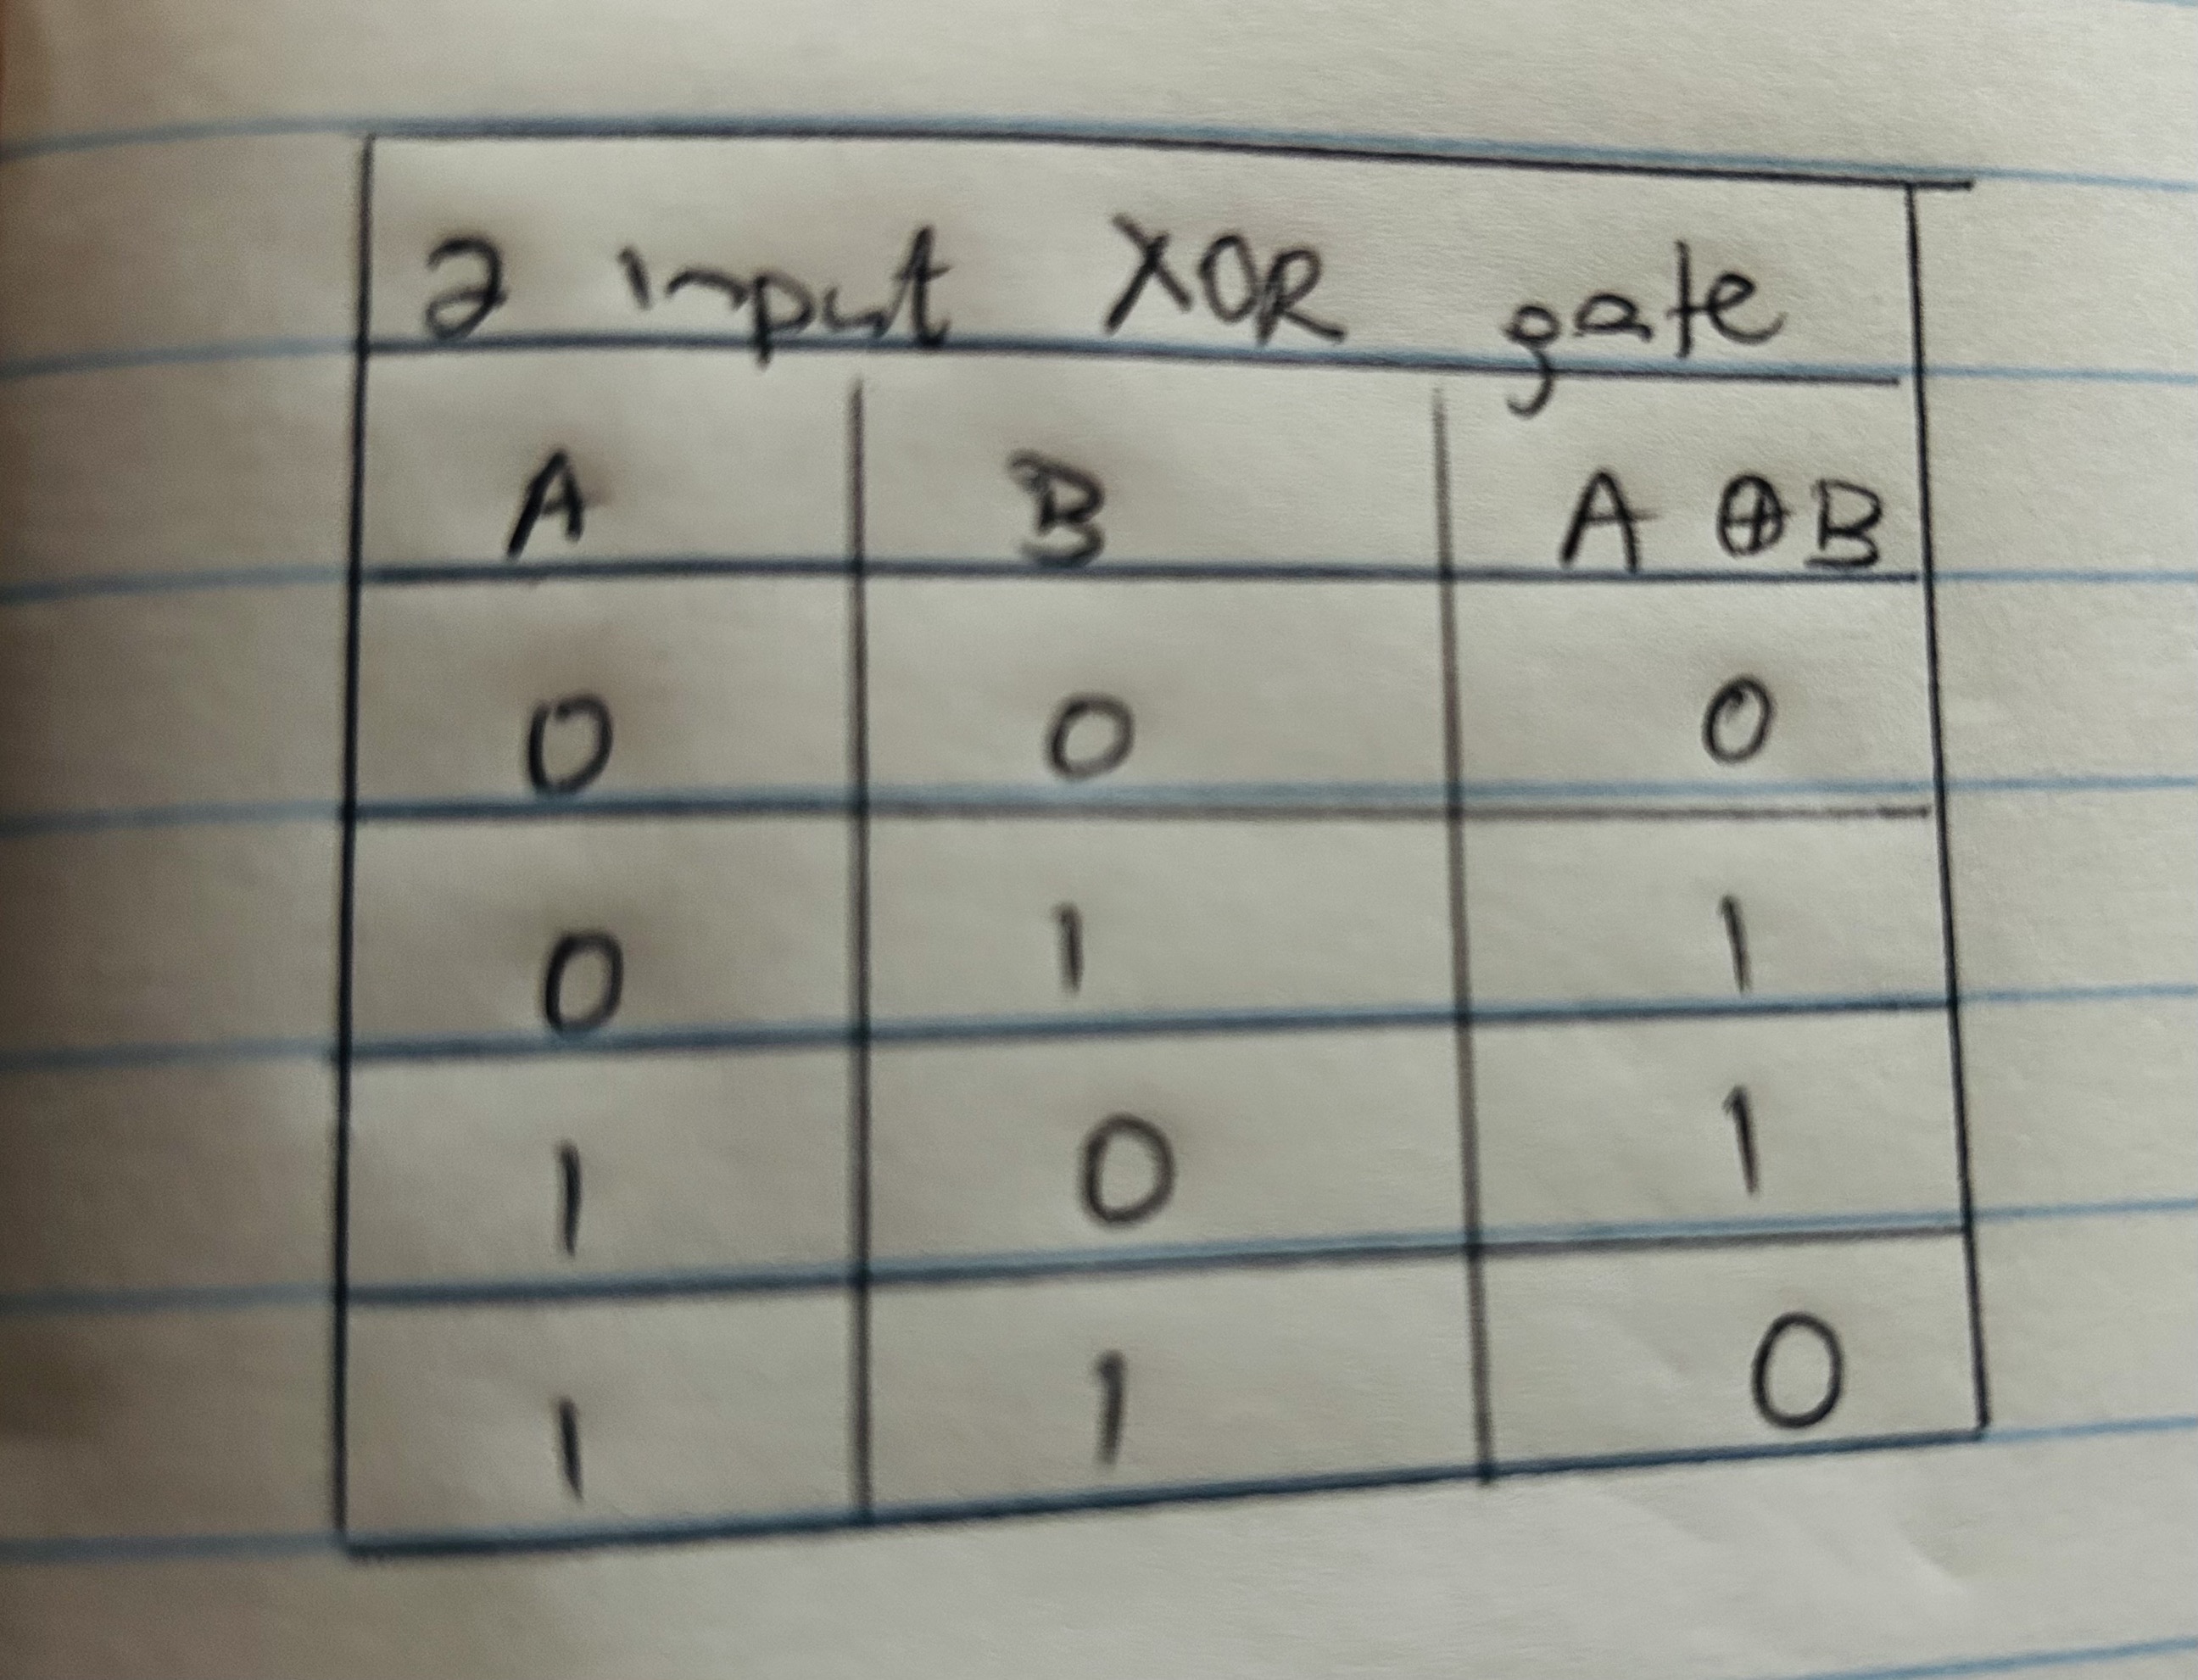 2 input XOR gate
A B A ⊕ B
0 0 0
0 1 1
1 0 1
1 1 0